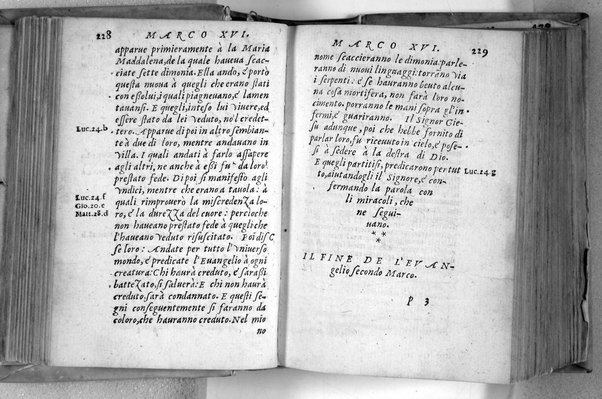 228 MARCO XVI.
apparue primieramente à la Maria
Maddalena, de la quale haueua scac-
ciate sette dimonia. Ella andò, e portò
questa nuoua à quegli che erano stati
con essolui, i quali piagneuano, e lamen
tauansi. E quegli, inteso lui viuere, ed
essere stato da lei veduto, nol credet-
Luc. 24. b tero. Apparue di poi in altro sembian-
te à due di loro, mentre andauano in
villa. I quali andati à farlo assapere
agli altri, ne anche à essi fu da loro
prestato fede. Di poi si manifestò agli
vndici, mentre che erano à tauola: à
Luc. 24. f quali rimprouerò la miscredenza lo-
Gio. 20. e ro, e la durezza del cuore: percioche
Matt. 28. d non haueano prestato fede à quegli che
l'haueano veduto risuscitato. Poi dis-
se loro: Andate per tutto l'vniuerso
mondo, e predicate l'Euangelio à ogni
creatura: Chi haurà creduto, e sarassi
battezato, si saluerà: E chi non haurà
creduto, sarà condannato. E questi se-
gni conseguentemente si faranno da
coloro, che hauranno creduto. Nel mio
no
MARCO XVI. 229
nome scaccieranno le dimonia: parle-
ranno di nuoui linguaggi: torrano via
i serpenti: e se hauranno beuto alcu-
na cosa mortifera, non farà loro no-
cimento. porranno le mani sopra gl'in
fermi, e guariranno. Il Signor Gie-
su adunque, poi che hebbe fornito di
parlar loro, fu riceuuto in cielo, e pose-
si à sedere à la destra di Dio.
E quegli partitisi, predicarono per tut Luc. 24. g
to, aiutandogli il Signore, e con-
fermando la parola con
li miracoli, che
ne segui-
uano.
* *
*
IL FINE DE L'EVAN-
gelio secondo Marco.
P 3